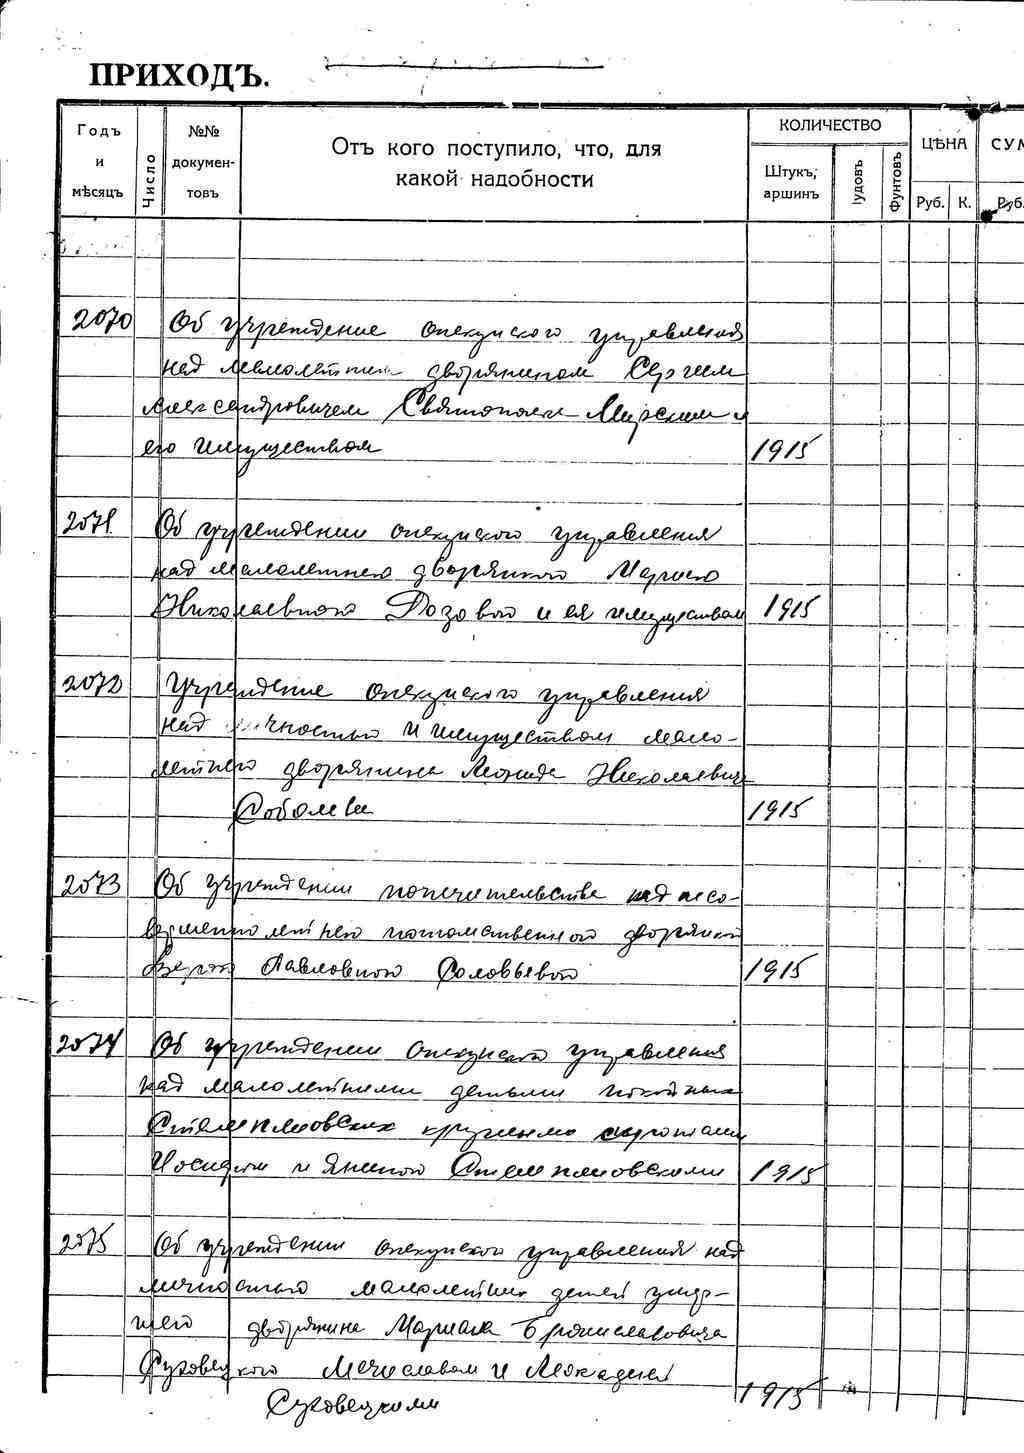 ПРИХОДЪ.
Годъ и мѣсяцъ
Число
№№ документовъ
Отъ кого поступило, что, для
какой надобности
КОЛИЧЕСТВО
Штукъ, аршинъ
Пудовъ
Фунтовъ
ЦѢНА
Руб. К.
СУМ
Руб.
2070 Об учреждение опекунского управления
над малолетним дворянином Сергеем
Александровичем Святополк-Мирским и
его имуществом 1915
2071 Об учреждении опекунского управления
над малолетнею дворянкою Мариею
Николаевною Розовою и ея имуществом 1915
2072 Учреждение опекунского управления
над личностью и имуществом мало-
летнего дворянина Леонида Николаевича
Соболева 1915
2073 Об учреждении попечительства над несо-
вершеннолетнею потомственной дворянкой
Верою Павловною Соловьевою 1915
2074 Об учреждении опекунского управления
над малолетними детьми покойных
Стемпловских круглыми сиротами
Иосифом и Яниною Стемпловскими 1915
2075 Об учреждении опекунского управления над
личностью малолетних детей умер-
шего дворянина Марьяна Брониславовича
Суховецкого Мечиславом и Леокадией
Суховецкими 1915